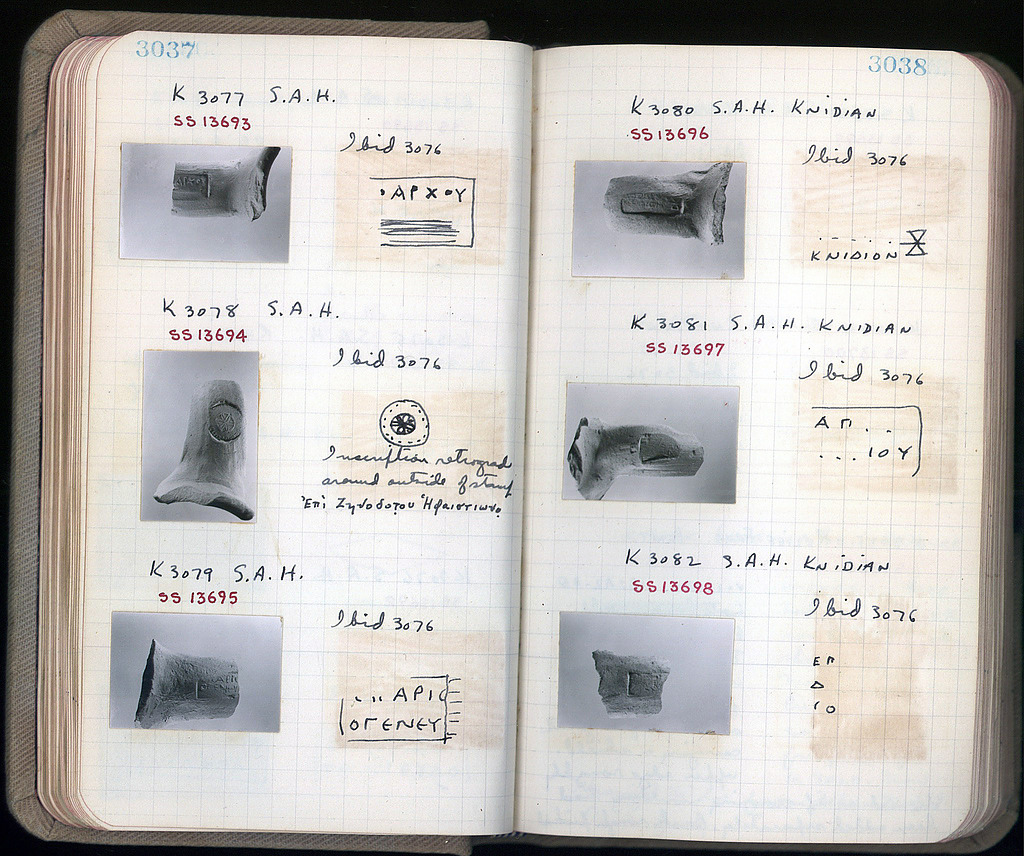 3037
K 3077 S.A.H.
SS 13693
Ibid 3076
·ΑΡΧΟΥ
K 3078 S.A.H.
SS 13694
Ibid 3076
Inscription retrograd
around outside of stamp
Ἐπὶ Ζηνοδότου Ἡφαιστίωνο
K 3079 S.A.H.
SS 13695
Ibid 3076
...ΑΡΙC
ΟΓΕΝΕΥ
3038
K 3080 S.A.H. KNIDIAN
SS 13696
Ibid 3076
KNIDION
K 3081 S.A.H. KNIDIAN
SS 13697
Ibid 3076
ΑΠ...
...ΙΟΥ
K 3082 S.A.H. KNIDIAN
SS 13698
Ibid 3076
ΕΠ
Δ
ΙΟ